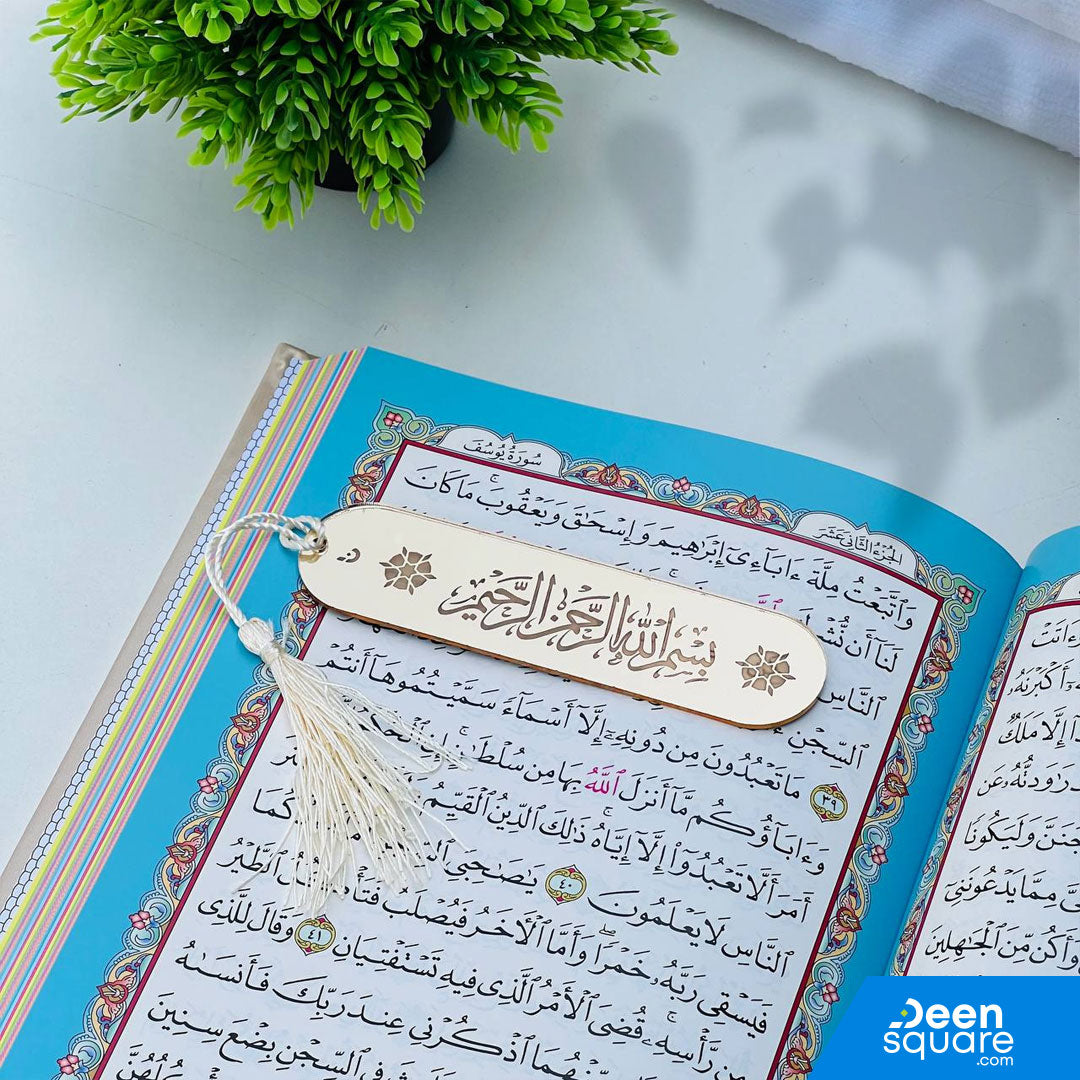 سُورَةُ يُوسُفَ
الجُزْءُ الثَّانِي عَشَرَ
وَٱتَّبَعْتُ مِلَّةَ ءَابَآءِىٓ إِبْرَٰهِيمَ وَإِسْحَٰقَ وَيَعْقُوبَ ۚ مَا كَانَ
لَنَآ أَن
ٱلنَّاسِ
ٱلسِّجْنِ
بِسْمِ ٱللَّهِ ٱلرَّحْمَٰنِ ٱلرَّحِيمِ
٣٩ مَا تَعْبُدُونَ مِن دُونِهِۦٓ إِلَّآ أَسْمَآءً سَمَّيْتُمُوهَآ أَنتُمْ
وَءَابَآؤُكُم مَّآ أَنزَلَ ٱللَّهُ بِهَا مِن سُلْطَٰنٍ ۚ إِنِ
أَمَرَ أَلَّا تَعْبُدُوٓا۟ إِلَّآ إِيَّاهُ ۚ ذَٰلِكَ ٱلدِّينُ ٱلْقَيِّمُ
ٱلنَّاسِ لَا يَعْلَمُونَ ٤٠ يَٰصَٰحِبَىِ
فَيَسْقِى رَبَّهُۥ خَمْرًا ۖ وَأَمَّا ٱلْأَخَرُ فَيُصْلَبُ ٱلطَّيْرُ
مِن رَّأْسِهِۦ ۚ قُضِىَ ٱلْأَمْرُ ٱلَّذِى فِيهِ تَسْتَفْتِيَانِ ٤١ وَقَالَ لِلَّذِى
مِّنْهُمَا ٱذْكُرْنِى عِندَ رَبِّكَ فَأَنسَىٰهُ
فِى ٱلسِّجْنِ بِضْعَ سِنِينَ
أَكْبَرْنَهُۥ
إِلَّا مَلَكٌ
وَلَيَكُونًا
مِمَّا يَدْعُونَنِىٓ
وَأَكُن مِّنَ ٱلْجَٰهِلِينَ
Deen
square
.com